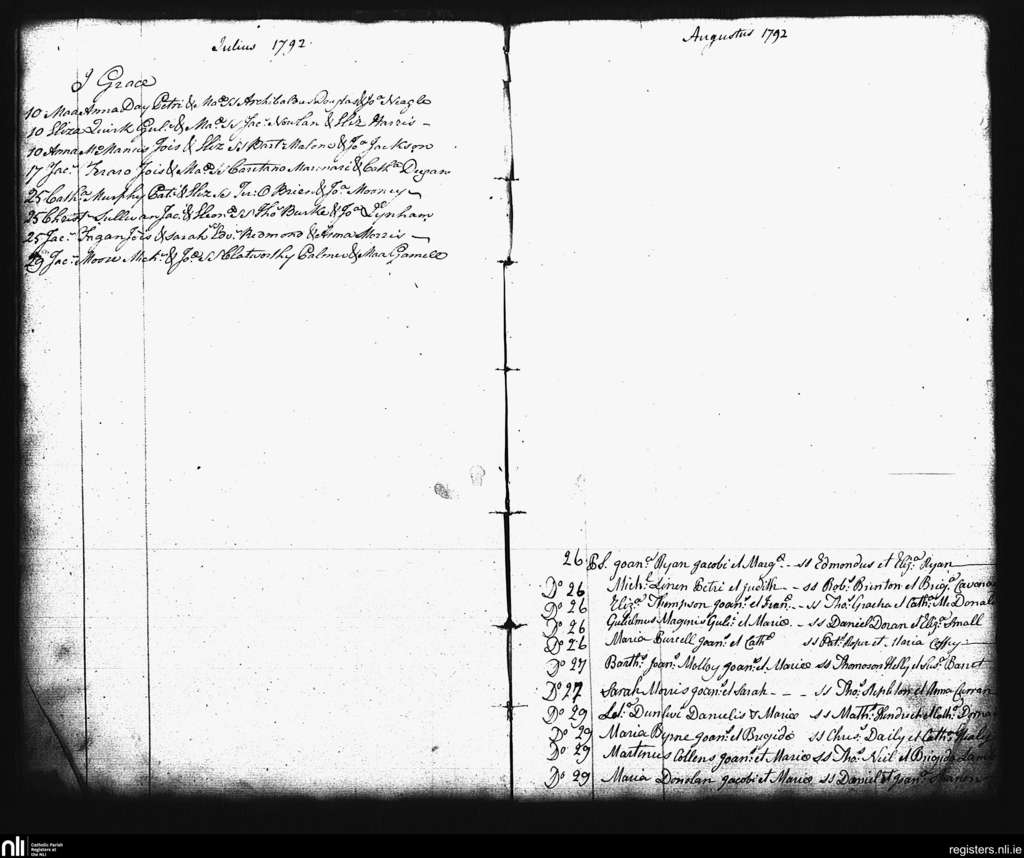 Julius 1792
J Grace
10 Maa Anna Day Petri & Ma: Ss Archibaldus Douglas & Joa Neagle
10 Eliza Quirk Gul: & Ma: Ss Jac: Noulan & Eliz Harris –
10 Anna McMannus Jois & Eliz Ss Bart Malone & Joa Jackson
17 Jac: Jois & Ma: Ss Caretano Marinari & Cath Dugan
25 Catha Murphy Pat: & Eliz Ss Ter: O Brien & Joa Mooney
25 Christ Sullivan Jac: & Eleon: Ss Thos Burke & Joa Lynham
25 Jac: Jois & Sarah Redmond & Anna Morris
29 Jac: Moore Mich: & Joa Ss Clatworthy Palmer & Maa Gamell
Augustus 1792
26 Ps. Joana Ryan Jacobi et Marga – ss Edmondus et Eliza Ryan
Do 26 Michl Linen Petri et Judith – ss Robt Brinton et Brigd Cavana
Do 26 Eliza Thompson Joans et Frans – ss Thos et Catha McDonal
Do 26 Gulielmus Maginis Guli: et Maria – ss Daniel Doran et Eliza Small
Do 26 Maria Purcell Joans et Cath ss Pat: Roper et Maria Coffey
Do 27 Barth: Joans Molloy Joans et Maria ss Thomas Kelly et Barret
Do 27 Sarah Morris Joans et Sarah – – – ss Thos et Anna Curran
Do 29 Danielis & Maria ss Math: et Cath:
Do 29 Maria Byrne Joans et Brigida ss Chrisr Daily et Cath: Healy
Do 29 Martinus Collens Joans et Maria ss Thos Neil et Brigida
Do 29 Maria Donolan Jacobi et Maria ss Daniel et Joana
nli Catholic Parish Registers at the NLI
registers.nli.ie